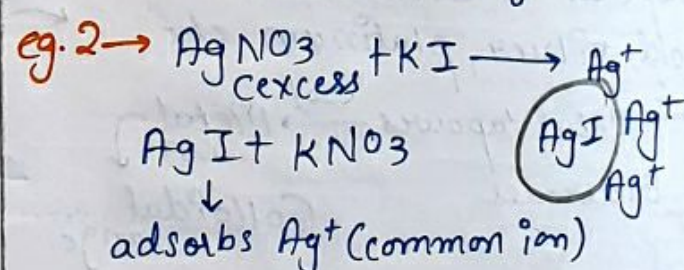 eg. 2→ AgNO3 + KI → Ag+
(excess
AgI + KNO3 AgI Ag+
Ag+
↓
adsorbs Ag+ (common ion)